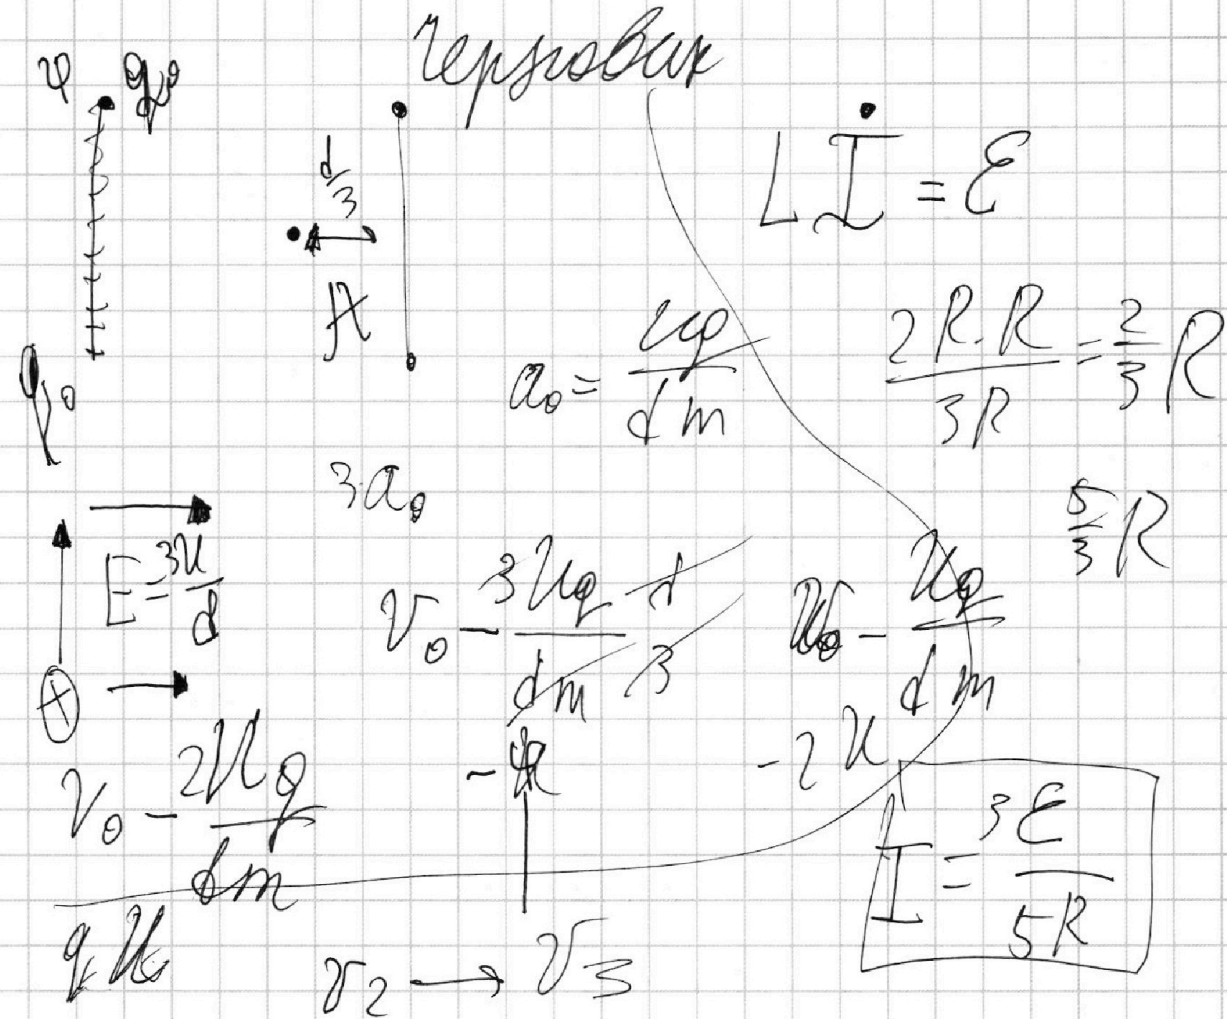 Черновик
φ q₀
d/3
L İ = ℰ
A
a₀ = Uq/dm
2R·R/3R = 2/3 R
q₀
3a₀
5/3 R
E = 3U/d
V₀ - 3Uq/dm d/3
- Uq/dm
V₀ - 2Uq/dm
-2U
I = 3ℰ/5R
V₂ → V₃